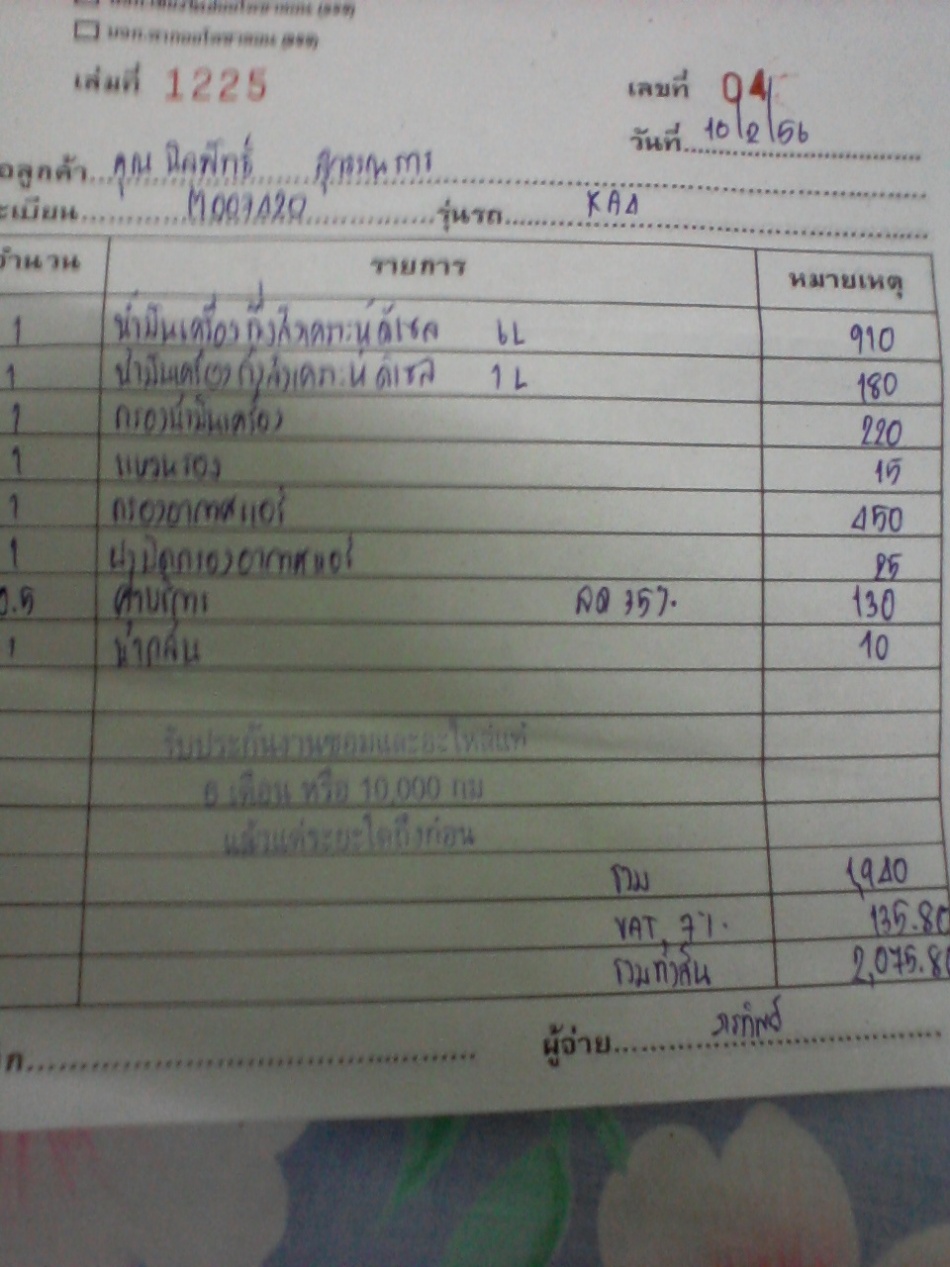 เล่มที่ 1225 เลขที่ 04
วันที่ 10/2/56
อลูกค้า คุณ
ะเบียน M007420 รุ่นรถ KA4
จำนวน รายการ หมายเหตุ
1 น้ำมันเครื่องกึ่งสังเคราะห์ดีเซล 6L 910
1 น้ำมันเครื่องกึ่งสังเคราะห์ดีเซล 1L 180
1 กรองน้ำมันเครื่อง 220
1 แหวนรอง 15
1 กรองอากาศแอร์ 450
1 ฝาปิดกรองอากาศแอร์ 25
0.5 ค่าบริการ ลด 35% 130
1 น้ำกลั่น 10
รับประกันงานซ่อมและอะไหล่แท้
6 เดือน หรือ 10,000 กม
แล้วแต่ระยะใดถึงก่อน
รวม 1,940
VAT 7% 135.80
รวมทั้งสิ้น 2,075.80
ผู้จ่าย